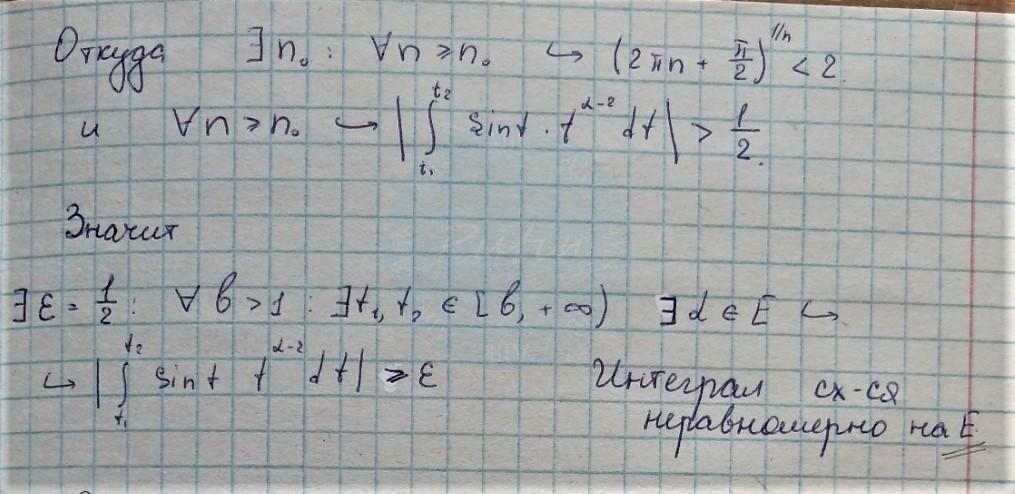 Откуда ∃ n₀ : ∀n ≥ n₀ ↪ (2πn + π/2)^{1/n} < 2.
и ∀n ≥ n₀ ↪ |∫_{t₁}^{t₂} sint · t^{α-2} dt| > 1/2.
Значит
∃ε = 1/2 : ∀ b > 1 : ∃t₁, t₂ ∈ [b, +∞) ∃ α ∈ E ↪
↪ |∫_{t₁}^{t₂} sint t^{α-2} dt| ≥ ε Интеграл сх-ся
неравномерно на E